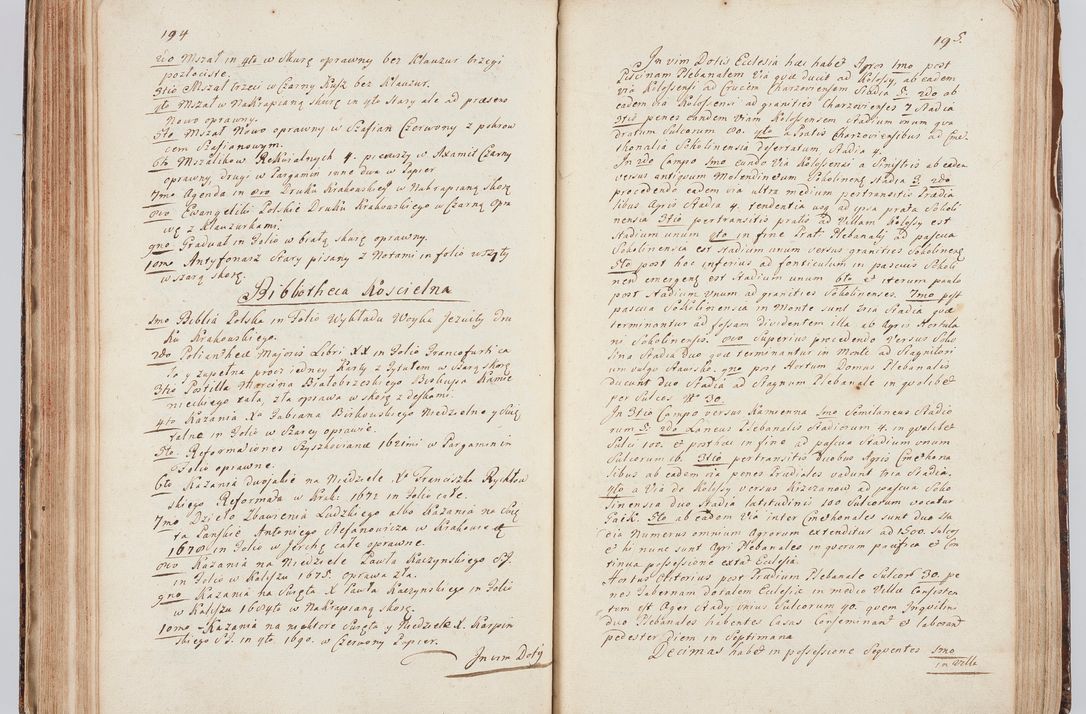 194
2do Mszał in 4to w Skurę oprawny bez Klauzur brzegi
pozłociste.
3tio Mszał trzeci w Czarny Kusz bez Klauzur.
4to Mszał w Nakrapianą skurę in 4to stary ale ad præsens
Nowo oprawny.
5to Mszał Nowo oprawny w Szafian Czerwony z pokrow
cem Szafianowym.
6to Mszalikow Rekwialnych 4. pierwszy w Axamit Czarny
oprawny, drugi w Pargamin inne dwa w Papier.
7mo Agenda in 8vo Druku Krakowskiego w Nakrapianą skorę
8vo Ewangeliki Polskie Druku Krakowskiego w Czarną Opra
wę z Klauzurkami.
9no Graduał in Folio w białą skurę oprawny.
10mo Antyfonarz Stary pisany z Notami in folio wszyty
w szarą skorę.
Bibliotheca Koscielna
1mo Biblia Polska in Folio Wykładu Woyka Jezuity Dru
ku Krakowskiego.
2do Polianthea Majoris Libri XX in Folio Francofurtica
ta y zupełna procz iedney Karty z Tytułem w Szarą skorę
3tio Postilla Marcina Białobrzeskiego Biskupa Kamie
nieckiego cała, zła oprawa w skorę z deskami.
4to Kazania Xa Fabiana Birkowskiego Niedzielne y Swię
talne in Folio w Szarey oprawie.
5to Reformationes Szyszkovianæ 1621mi w Pargamin in
Folio oprawne.
6to Kazania dwojakie na Niedziele X Franciszka Rychłow
skiego Reformata w Krak: 1672 in Folio całe.
7mo Dzieło Zbawienia Ludzkiego albo Kazania na Swię
ta Panskie Antoniego Stefanowicza w Krakowie
1678 in Folio w Jerchę całe oprawne.
8vo Kazania na Niedziele Pawła Kaczynskiego SJ.
in Folio w Kaliszu 1675. oprawa zła.
9no Kazania na Swięta X Pawła Kaczynskiego in Folio
w Kaliszu 1684to w Nakrapianą skorę.
10mo Kazania na niektore Swięta y Niedziele X. Karpin
skiego SJ. in 4to 1690. w Czerwony Papier.
In vim Dotis
195.
In vim Dotis Ecclesia hæc habet Agros 1mo post
Piscinam Plebanalem Via quæ ducit ad Kolossy, ab eadem
via Kolossensi ad Crucem Charzoviensem Stadia 5. 2do ab
eadem via Kolossensi ad granities Charzovienses 7 Stadia
3tio penes eandem viam Kolossensem Stadium unum qua
dratum Sulcorum 80. 4to a Pratis Charzoviensibus ad Cme
thonalia Sokolinensia desertatum Stadia 4.
In 2do Campo 1mo eundo Via Kolossensi a Sinistris ab eadem
versus antiquum Molendinum Sokolinense Stadia 3. 2do
procedendo eadem via ultra medium pertransitis Pradia
libus Agris Stadia 4. tendentia usq ad ipsa prata Sokoli
nensia 3tio pertransitis pratis ad Villam Kolossy est
Stadium unum 4to in fine Prat Plebanalis ad pascua
Sokolinensia est Stadium unum versus granities Sokolinens
5to post hoc inferius ad fonticulum in pascuis Sokoli
nen emergens est Stadium unum 6to et iterum paulo
post Stadium Unum ad granities Sokolinenses. 7mo post
pascua Sokolinensia in Monte sunt tria Stadia quæ
terminantur ad fossam dividentem illa ab Agris Hortula
ni Sokolinensis. 8vo Superius procedendo Versus Soko
lina Stadia Duo quæ terminantur in Monte ad Stagnilori
um vulgo Stawisko. 9no post Hortum Domus Plebanalis
ducunt Duo Stadia ad Stagnum Plebanale in quolibet
per Sulcos N 30.
In 3tio Campo versus Kamienna 1mo Semilaneus Stadio
rum 5. 2do Laneus Plebanalis Stadiorum 4. in quolibet
Sulci 100. et post hæc in fine ad pascua Stadium unum
Sulcorum 16. 3tio pertransitis Duobus Agris Cmethona
libus ab eadem via penes Pradiales vadunt tria Stadia.
4to a Via de Kolossy versus Krzczanow ad pascua Soko
linensia Duo Stadia latitudinis 100 Sulcorum vocatur
Gaik. 5to ab eadem Via inter Cmethonales sunt Duo Sta
dia Numerus omnium Agrorum extenditur ad 1500. Sulcos
et hi nunc sunt Agri Plebanales in quorum pacifica et Con
tinua possessione extat Ecclesia.
Hortus Olitorius post Pradium Plebanale Sulcor 30. pe
nes Tabernam Dotalem Ecclesiæ in medio Villæ Consisten
tem est Ager Stady unius Sulcorum 40. quem Inquilini
duo Plebanales habentes Casas Conseminant et laborant
pedester Diem in Septimana
Decimas habet in possessione Sequentes 1mo
in Villa